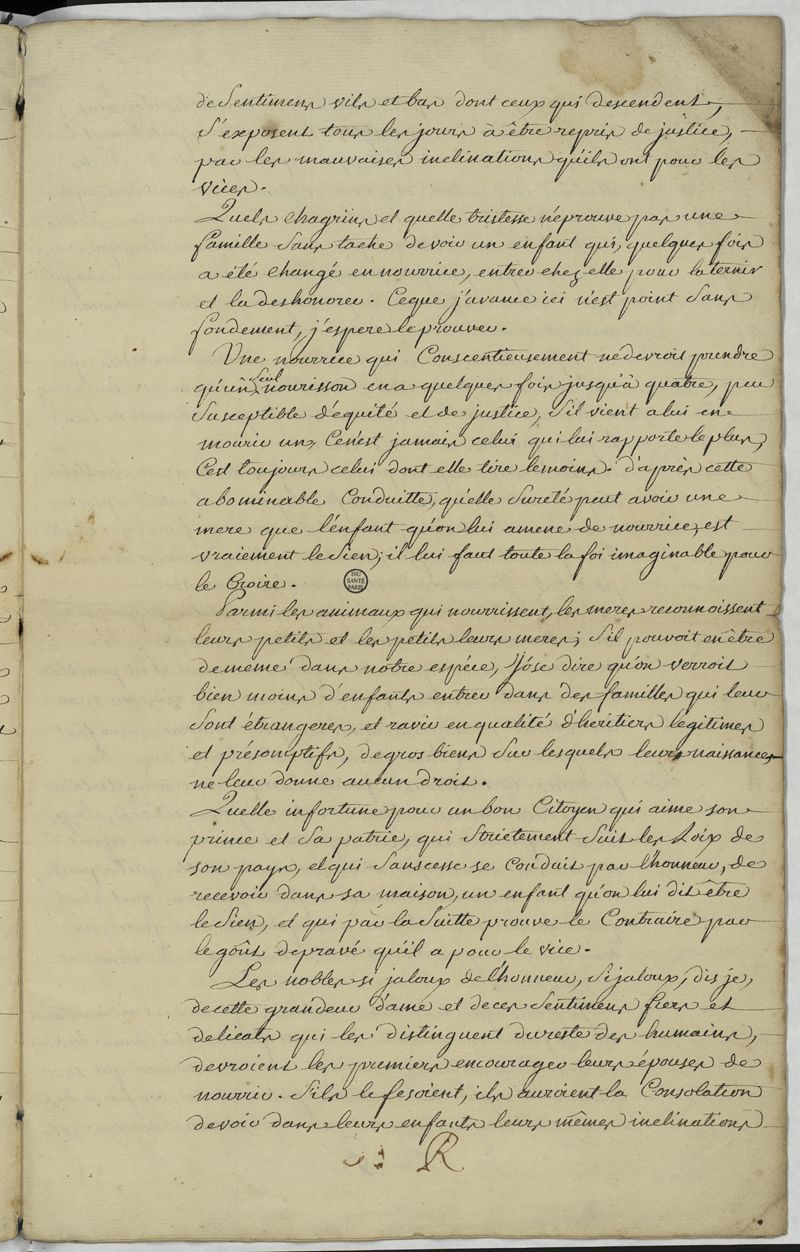 de Sentimens vils et bas dont ceux qui descendent,
S'exposent tous les jours à être repris de justice,
par les mauvaises inclinations qu'ils ont pour les
vices.
Quels chagrins et quelle tristesse n'eprouve pas une
famille sans tache de voir un enfant qui, quelques fois
a été changé en nourrice, entrer chez elle pour la ternir
et la deshonorer. Ce que j'avance ici n'est point sans
fondement, j'espere le prouver.
Une nourrice qui Conscentieusement ne devroit prendre
qu'un Seul nourisson en a quelques fois jusqu'à quatre, peu
Susceptible d'equité et de justice, S'il vient a lui en
mourir un, Ce n'est jamais celui qui lui rapporte le plus,
C'est toujours celui dont elle tire le moins. D'après cette
abominable Conduitte, qu'elle Sureté peut avoir une
mere que l'enfant qu'on lui amene de nourrice, est
vraiement le Sien; il lui faut toute la foi imaginable pour
le Croire.
BIU SANTÉ PARIS
Parmi les animaux qui nourrissent, les meres reconnoissent
leurs petits et les petits leurs meres; S'il pouvoit en être
de meme dans notre espéce, J'ose dire qu'on verroit
bien moins d'enfants entrer dans des familles qui leur
Sont étrangeres, et ravir en qualité d'heritiers legitimes
et présomptifs, de gros biens Sur lesquels leurs naissances
ne leur donne aucun droit.
Quelle infortune pour un bon Citoyen qui aime son
prince et Sa patrie, qui Strictement Suit les Loix de
son pays, et qui Sans cesse se Conduit par l'honneur, de
recevoir dans sa maison, un enfant qu'on lui dit être
le Sien, et qui par la Suitte prouve le Contraire par
le goût depravé qu'il a pour le vice.
Les nobles si jaloux de l'honneur, Si jaloux, dis je,
de cette grandeur d'ame et de ces Sentimens fiers et
delicats qui les distinguent du reste des humains,
devroient les premiers encourager leurs épouses de
nourrir. S'ils le fesoient, ils auroient la Consolation
de voir dans leurs enfants leurs mêmes inclinations
R